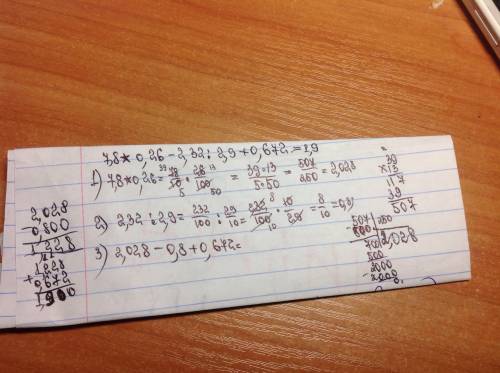 7,8 * 0,26 - 2,32 : 2,9 + 0,672 = 1,9
1) 7,8 * 0,26 = 78/10 * 26/100 = 39*13/5*50 = 507/250 = 2,028
2) 2,32 : 2,9 = 232/100 : 29/10 = 232/100 * 10/29 = 8/10 = 0,8
3) 2,028 - 0,8 + 0,672 =
2,028
- 0,800
1,228
1,228
+ 0,672
1,900
39
x 13
117
39
507
507 250
500 2,028
700
500
2000
- 2000
0